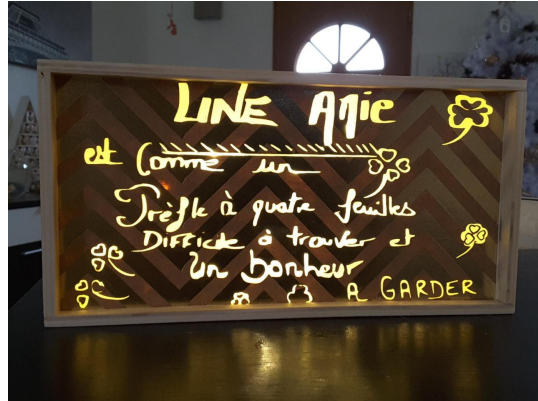 UNE Amie
est Comme un
Trèfle à quatre feuilles
Difficile à trouver et
Un bonheur
A GARDER